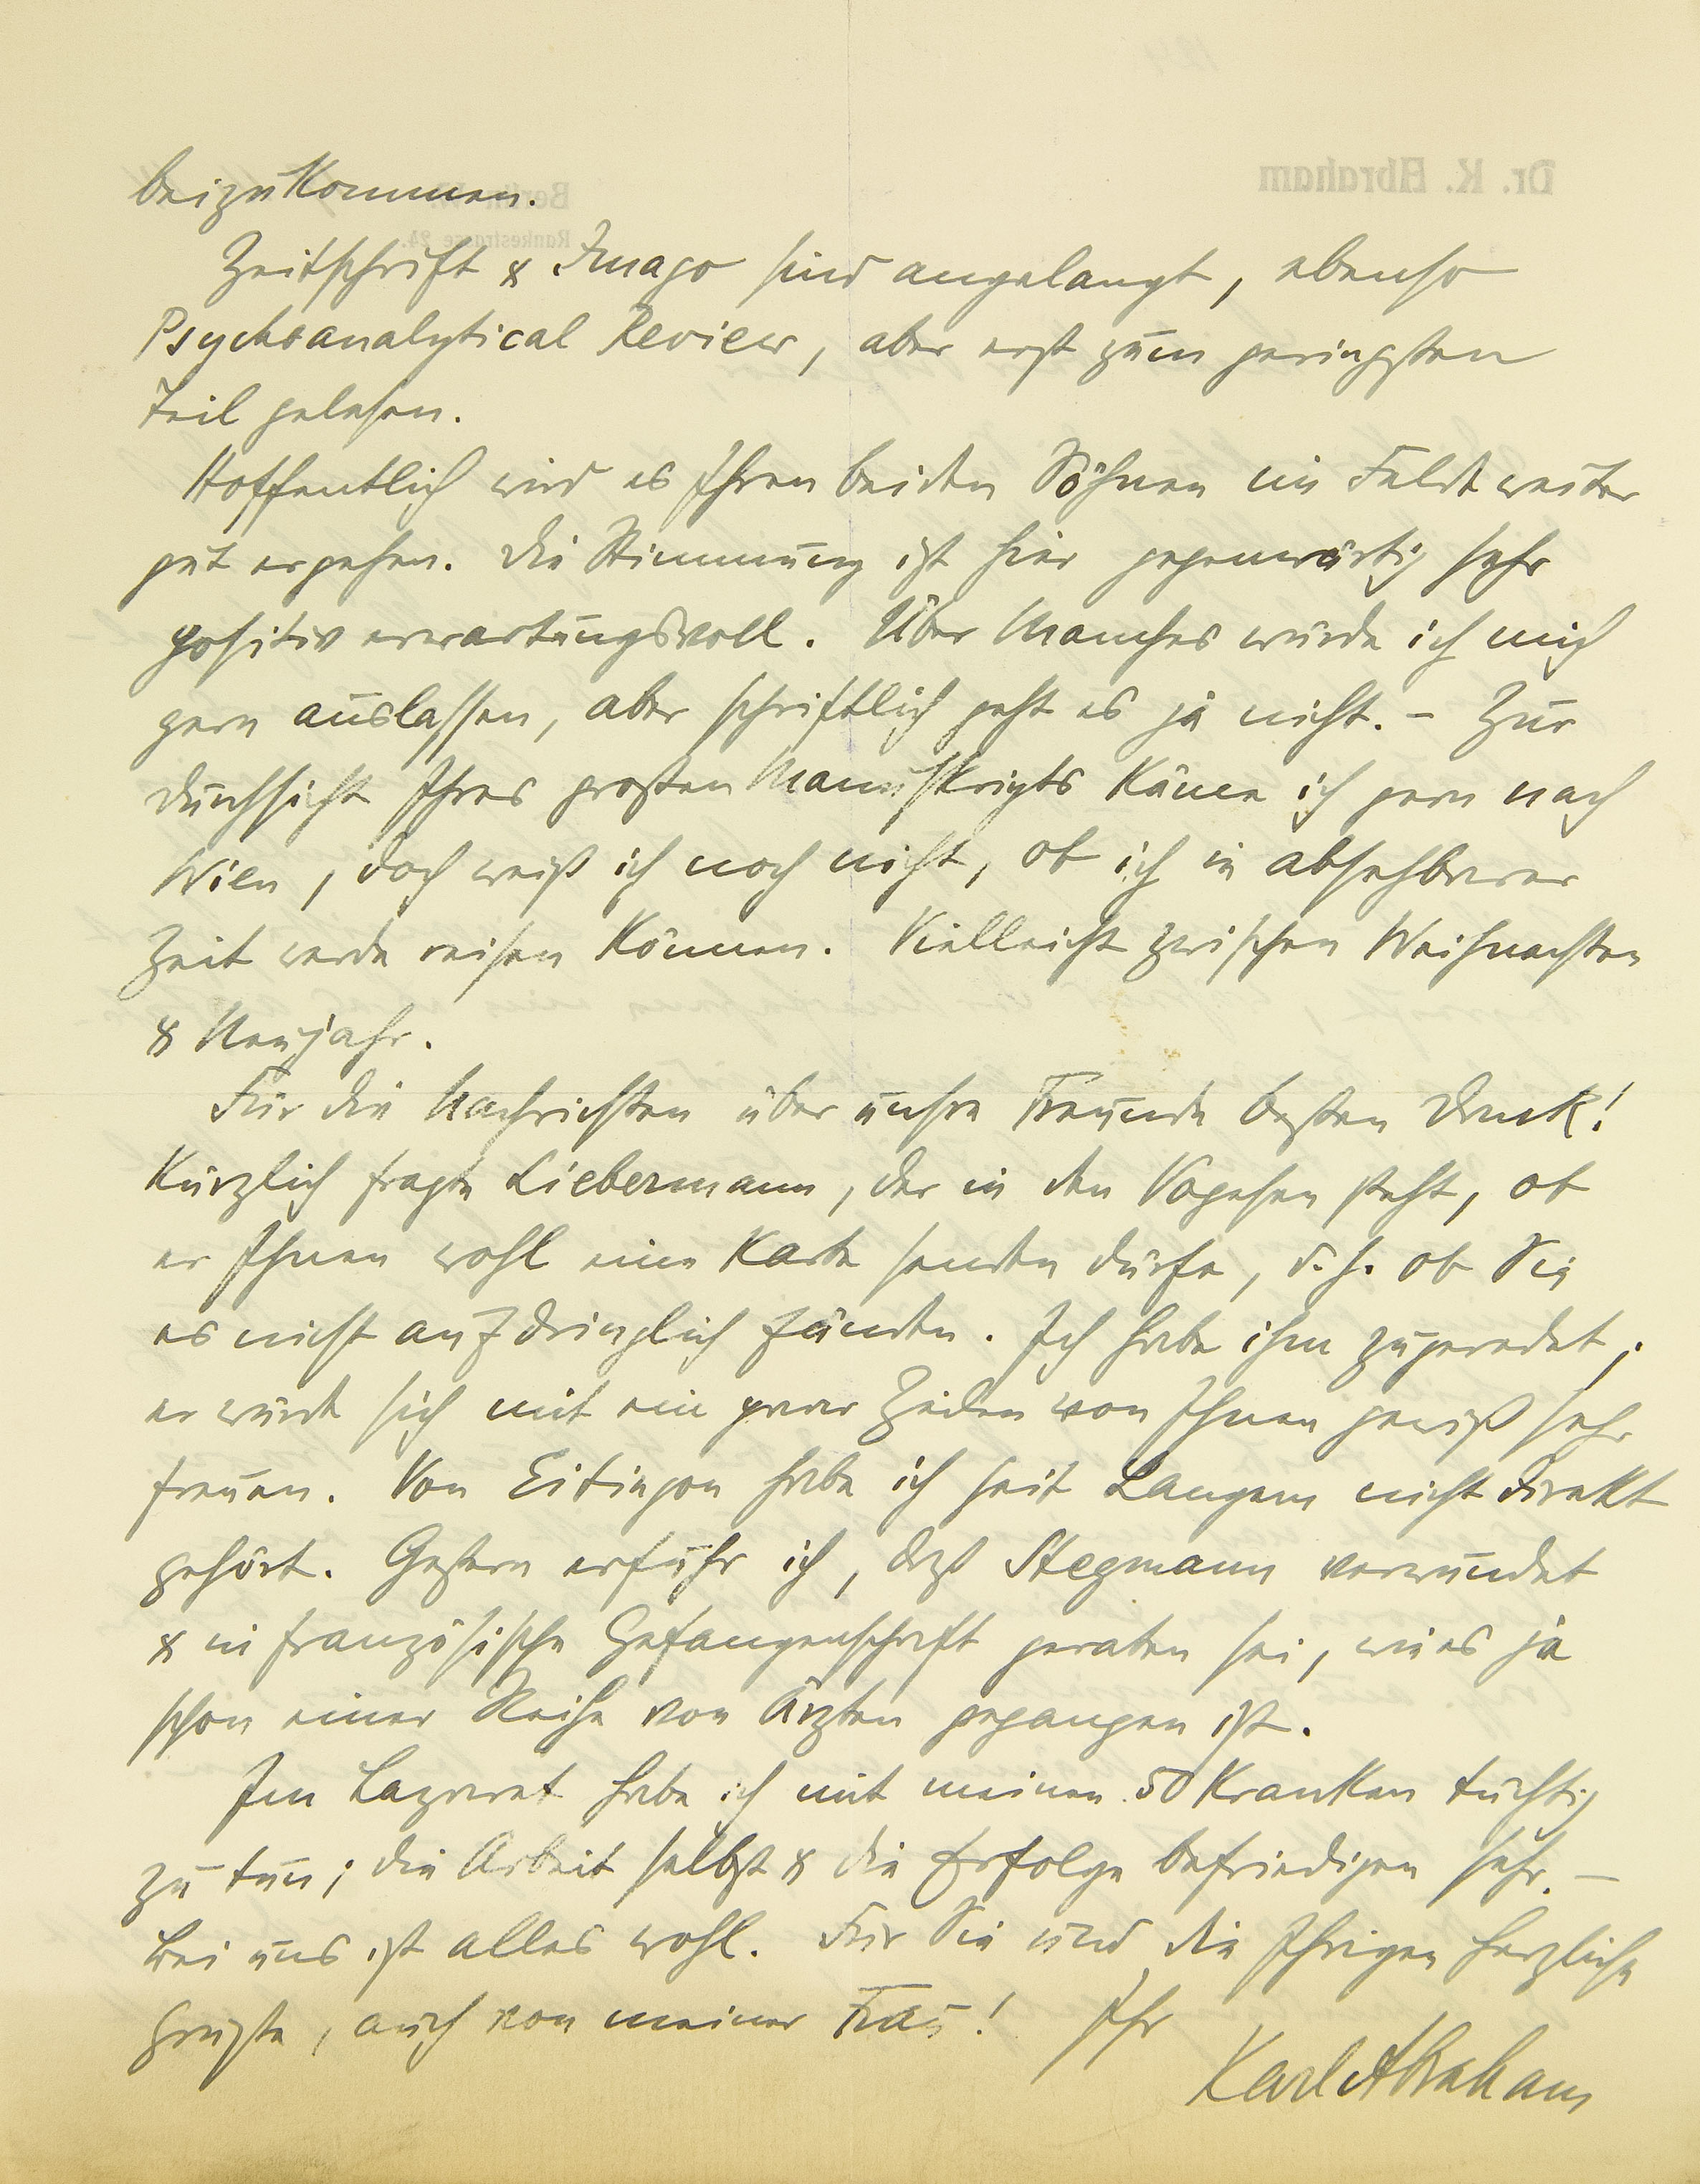 beizukommen.
Zeitschrift & Imago sind angelangt, ebenso
Psychoanalytical Review, aber erst zum geringsten
Teil gelesen.
Hoffentlich wird es Ihren beiden Söhnen im Felde weiter
gut ergehen. Die Stimmung ist hier gegenwärtig sehr
positiv erwartungsvoll. Über Manches würde ich mich
gern auslassen, aber schriftlich geht es ja nicht. – Zur
Durchsicht Ihres großen Manuskripts käme ich gern nach
Wien, doch weiß ich noch nicht, ob ich in absehbarer
Zeit werde reisen können. Vielleicht zwischen Weihnachten
& Neujahr.
Für die Nachrichten über unsre Freunde besten Dank!
Kürzlich fragte Liebermann, der in den Vogesen steht, ob
er Ihnen wohl eine Karte senden dürfe, d. h. ob Sie
es nicht aufdringlich fänden. Ich habe ihm zugeredet;
er würde sich mit ein paar Zeilen von Ihnen gewiß sehr
freuen. Von Eitingon habe ich seit Langem nicht direkt
gehört. Gestern erfuhr ich, daß Stegmann verwundet
& in französische Gefangenschaft geraten sei, wie es ja
schon einer Reihe von Ärzten gegangen ist.
Im Lazaret habe ich mit meinen 50 Kranken tüchtig
zu tun; die Arbeit selbst & die Erfolge befriedigen sehr. –
Bei uns ist alles wohl. Für Sie und die Ihrigen herzliche
Grüße, auch von meiner Frau! Ihr
Karl Abraham
Dr. K. Abraham
Berlin
Rankestrasse 24.